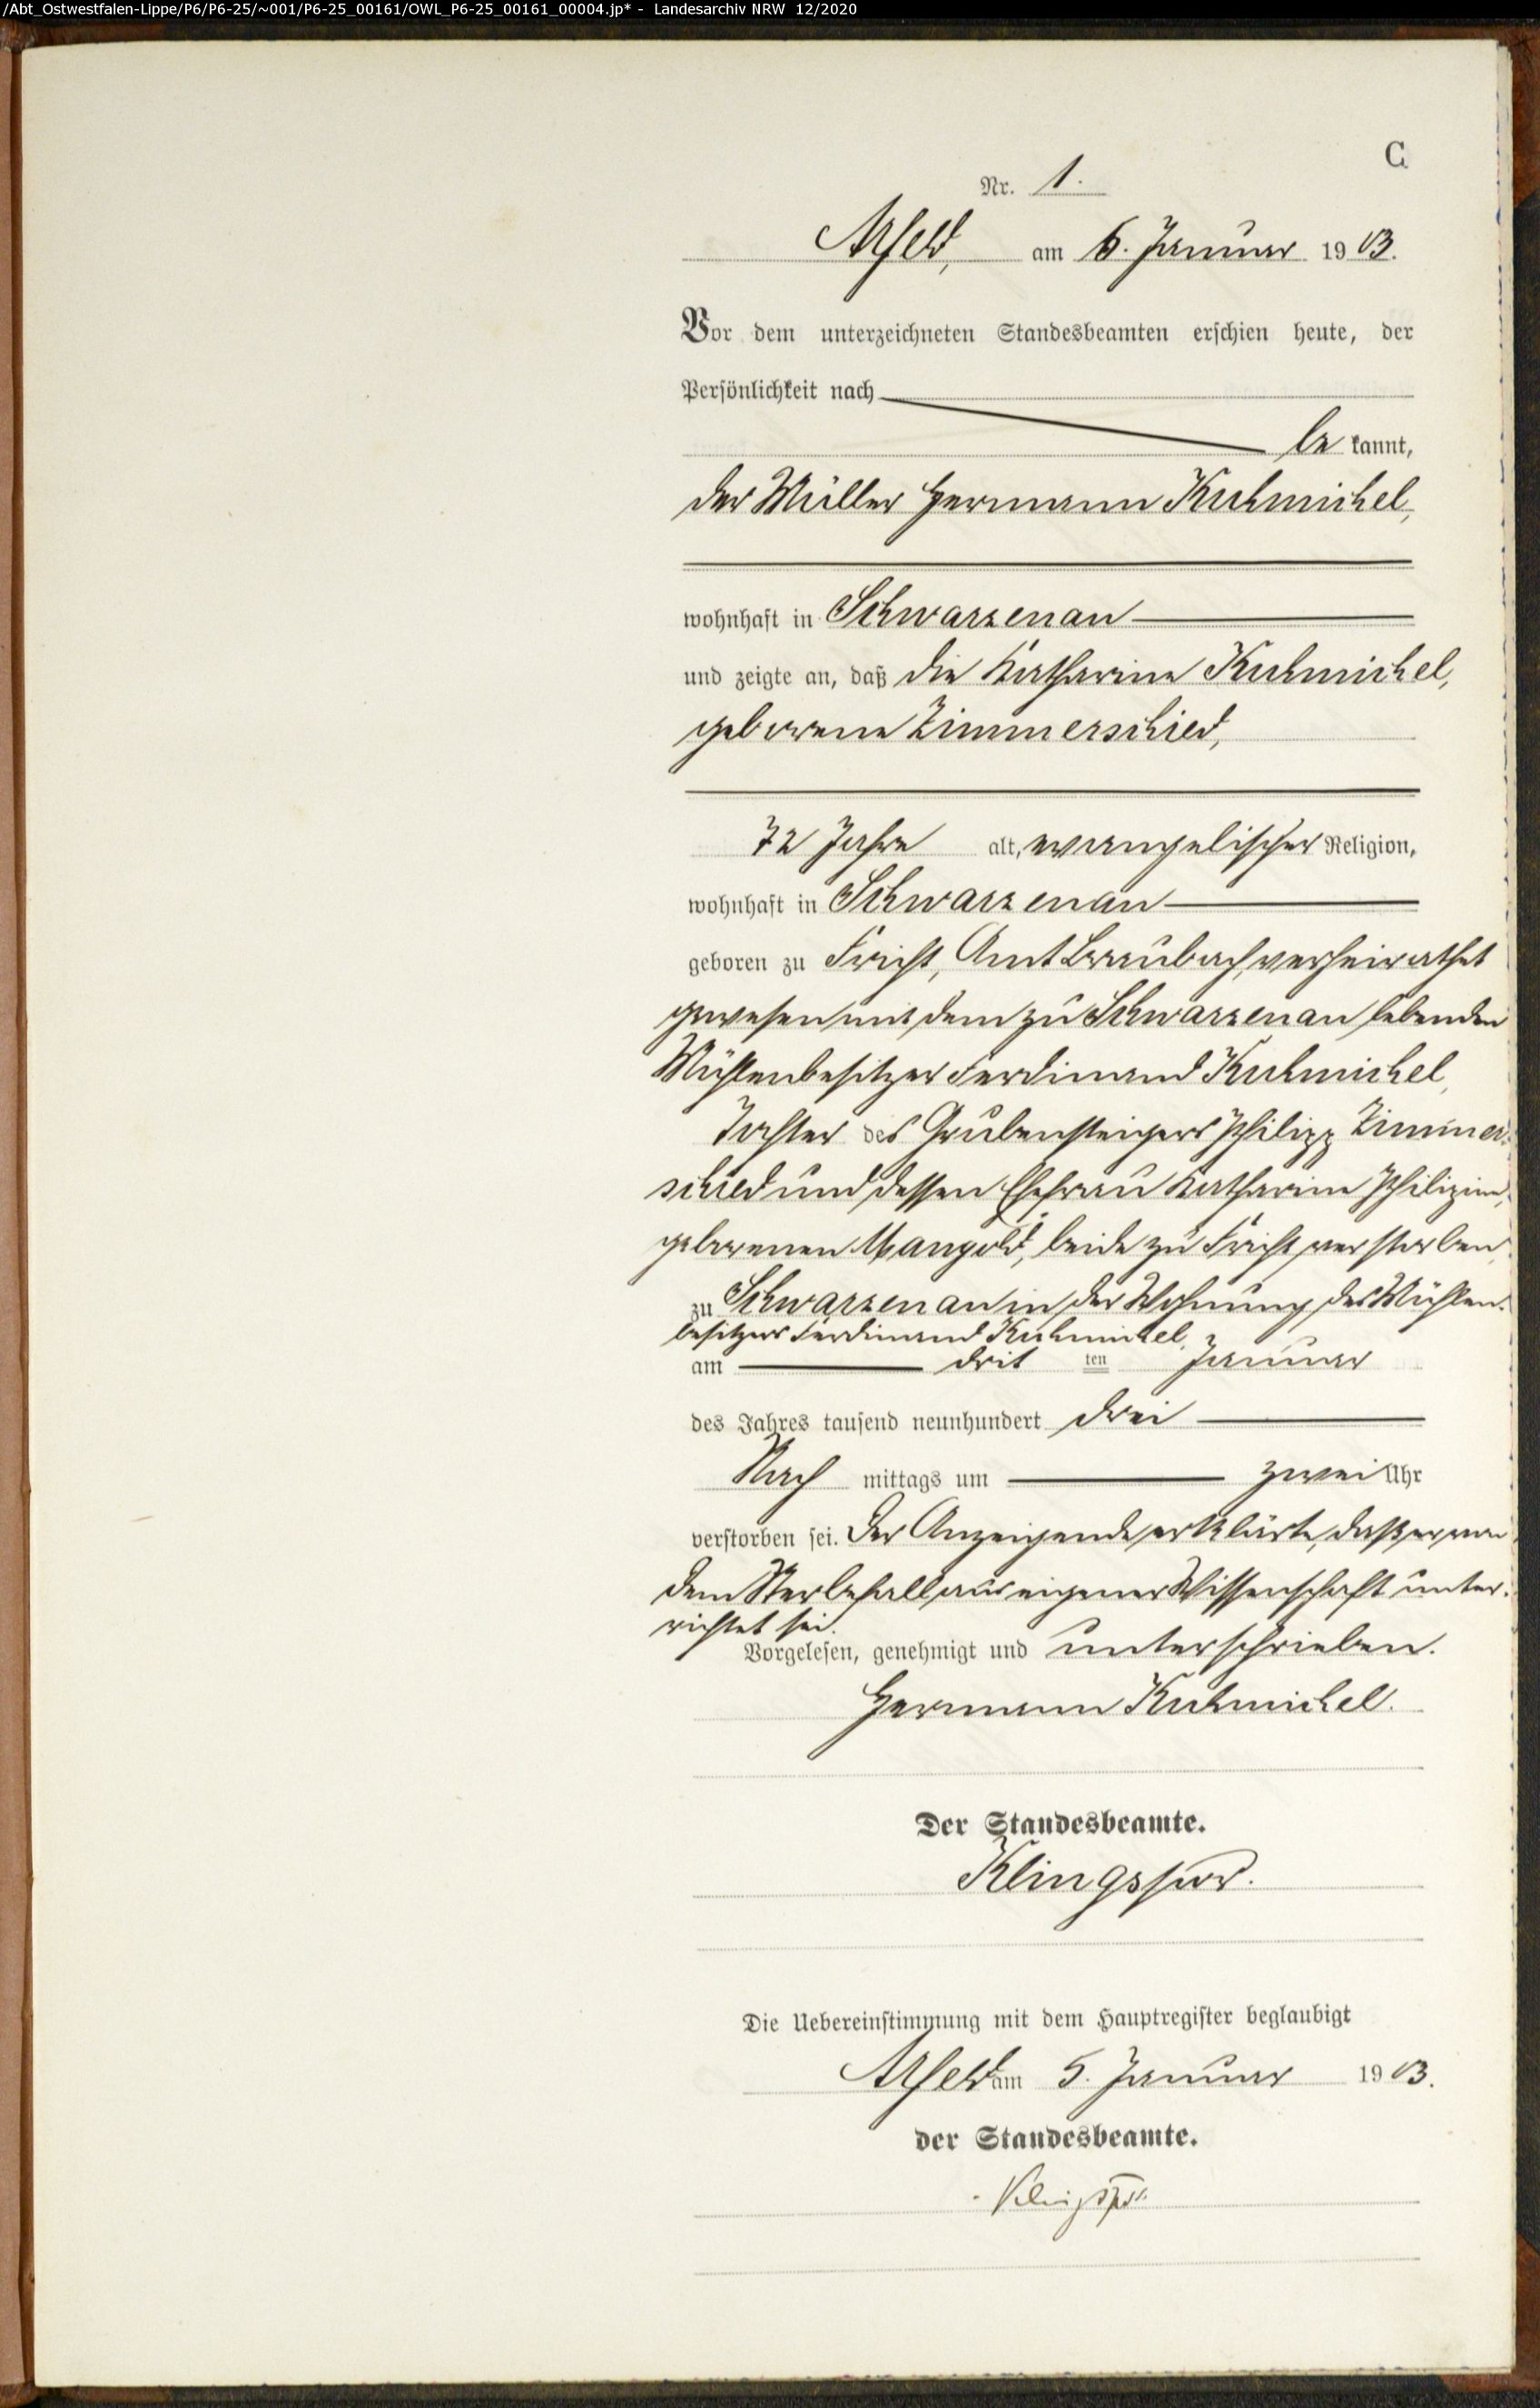 /Abt_Ostwestfalen-Lippe/P6/P6-25/~001/P6-25_00161/OWL_P6-25_00161_00004.jp* - Landesarchiv NRW 12/2020
C
Nr. 1.
Arfeld, am 6. Januar 1903.
Vor dem unterzeichneten Standesbeamten erschien heute, der
Persönlichkeit nach
be kannt,
der Müller Hermann Kuhmichel,
wohnhaft in Schwarzenau
und zeigte an, daß die Katharine Kuhmichel,
geborene Zimmerschied,
72 Jahre alt, evangelischer Religion,
wohnhaft in Schwarzenau
geboren zu Fricht, Amt Braubach, verheirathet
gewesen mit dem zu Schwarzenau lebenden
Mühlenbesitzer Ferdinand Kuhmichel,
Tochter des Grubensteigers Philipp Zimmer-
schied und dessen Ehefrau Katharine Philipine,
geborenen Mangold, beide zu Fricht verstorben,
zu Schwarzenau in der Wohnung des Mühlen-
besitzers Ferdinand Kuhmichel,
am drit ten Januar
des Jahres tausend neunhundert drei
Nach mittags um zwei Uhr
verstorben sei. Der Anzeigende erklärte, daß er von
dem Sterbefall aus eigener Wissenschaft unter-
richtet sei.
Vorgelesen, genehmigt und unterschrieben.
Hermann Kuhmichel.
Der Standesbeamte.
Klingspor.
Die Uebereinstimmung mit dem Hauptregister beglaubigt
Arfeld am 5. Januar 1903.
der Standesbeamte.
Klingspor